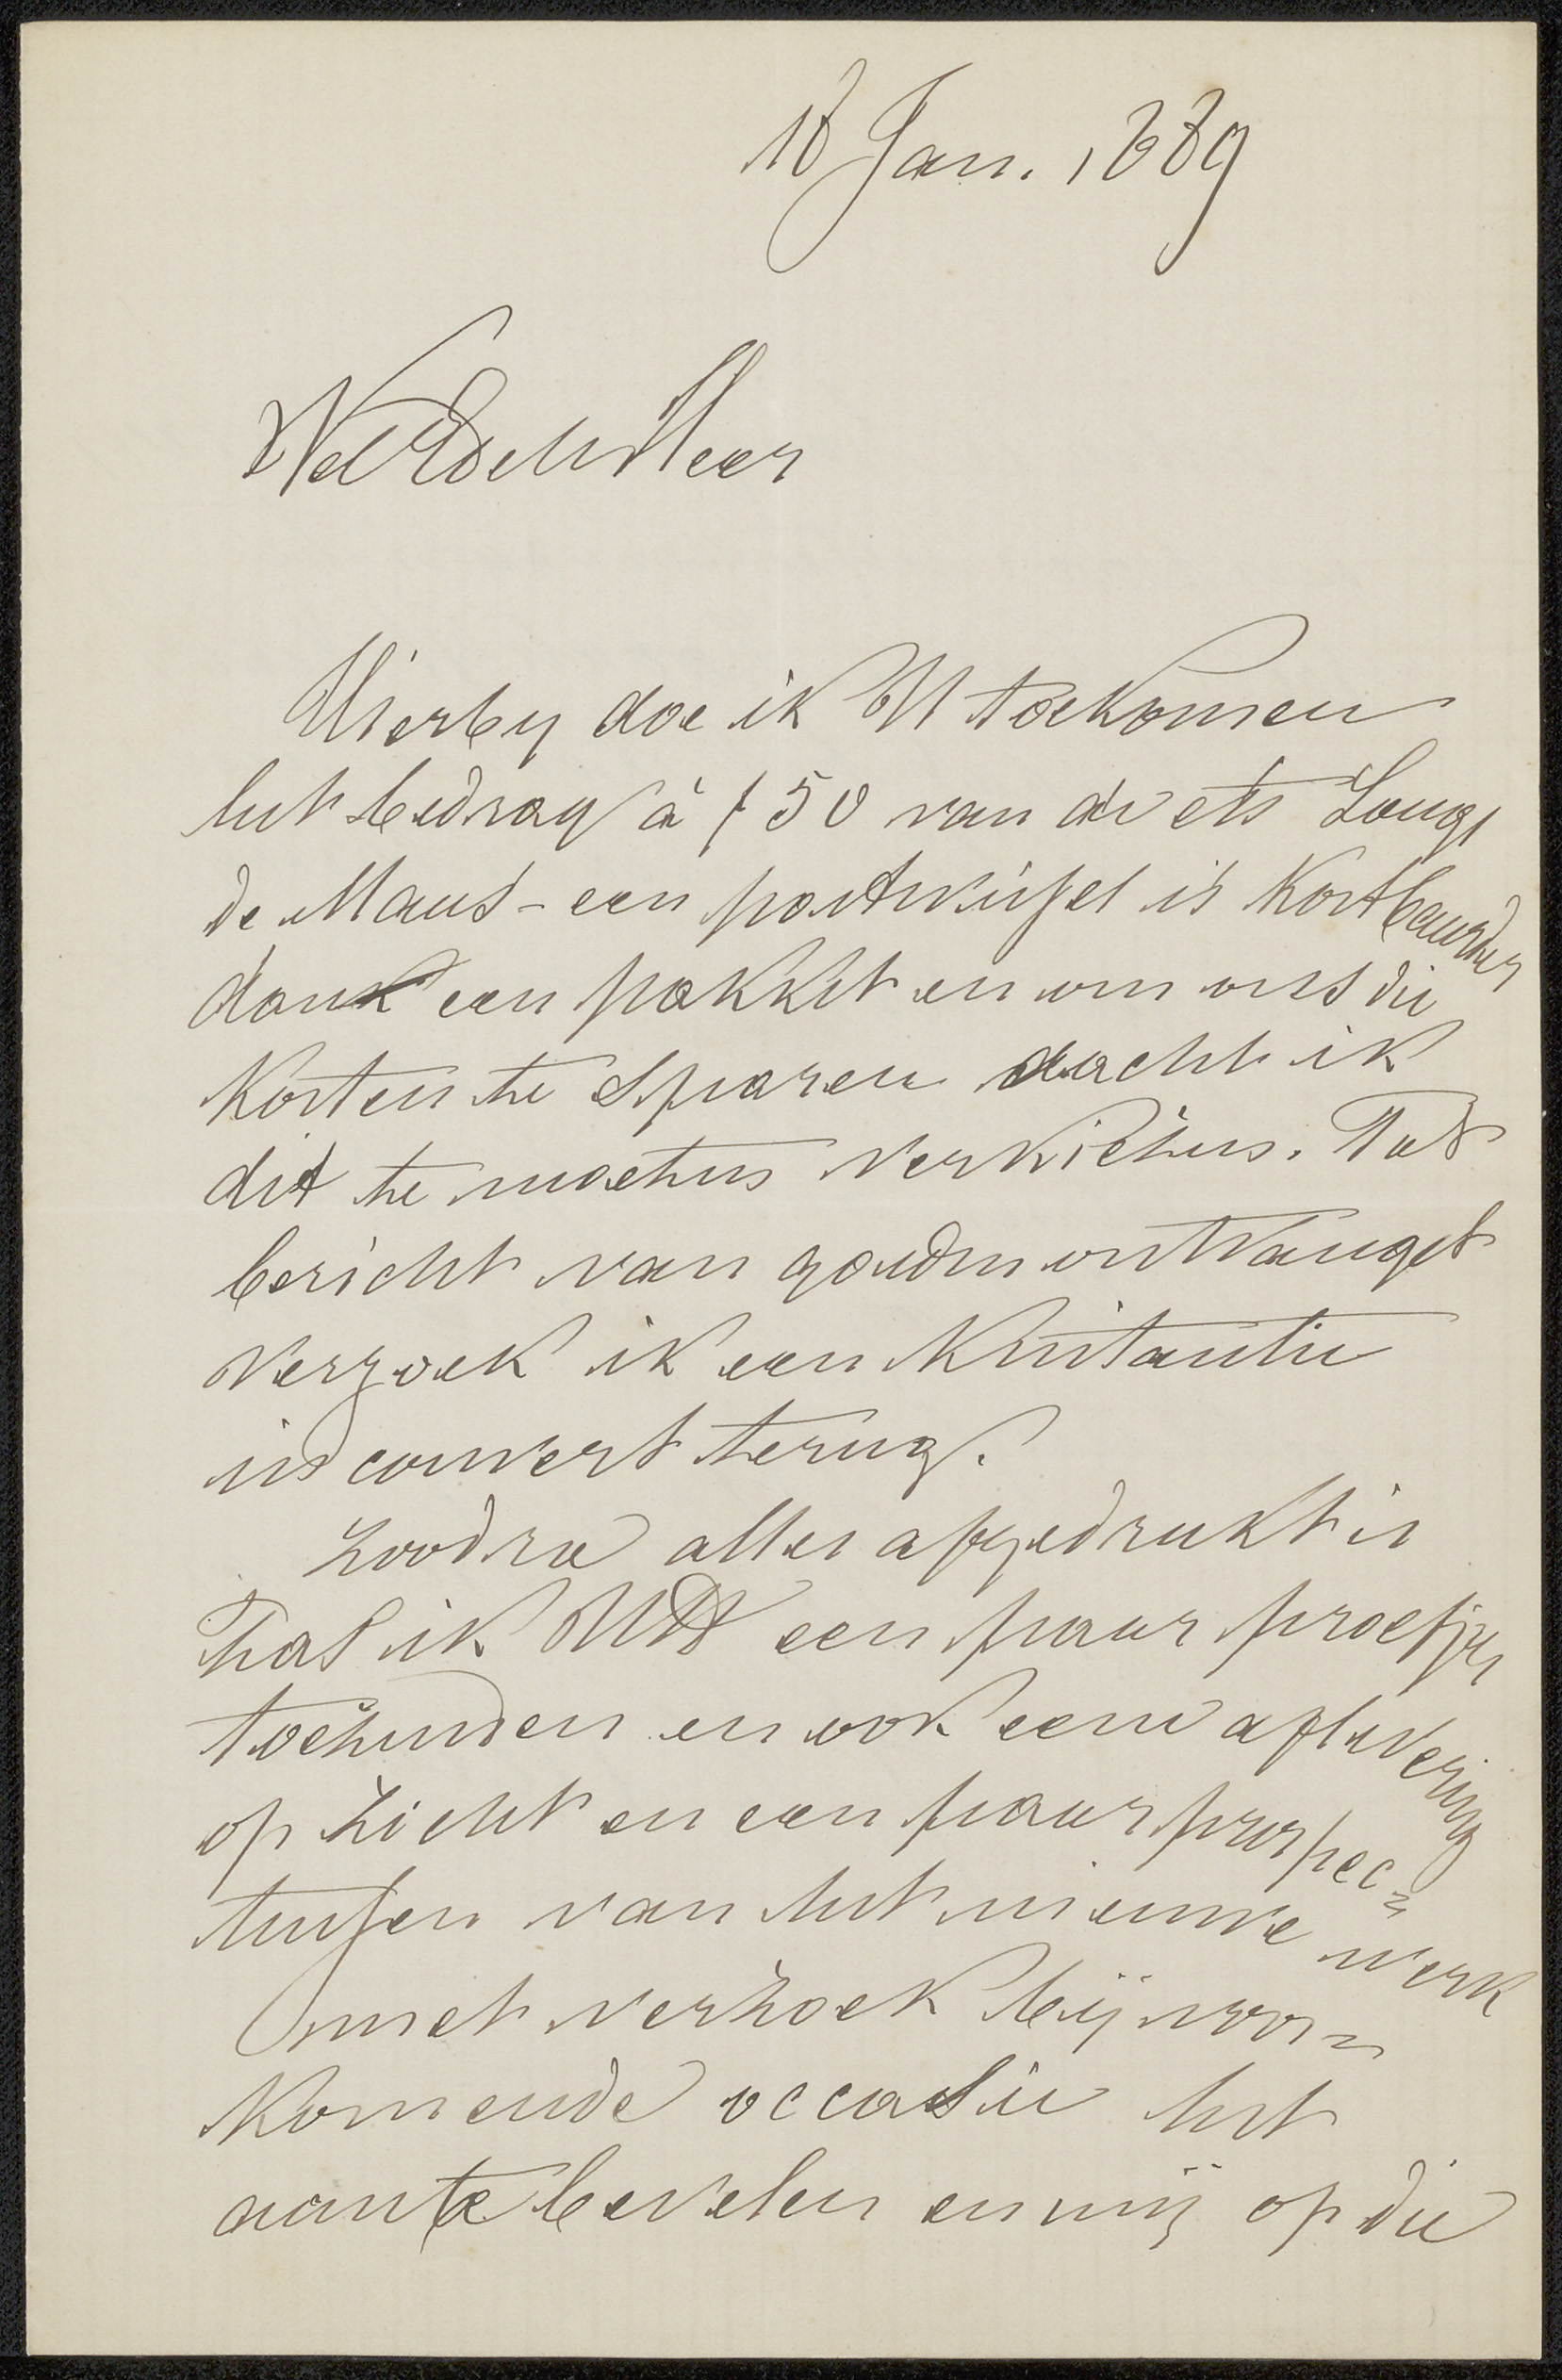 18 Jan. 1889
WelEdelen Heer
Hierby doe ik U toekomen
het bedrag à f 50 van de ets Langs
de Maas - een postwissel is kostbaarder
dan een pakket en om ons die
kosten te sparen dacht ik
dit te moeten verkiezen. Tot
bericht van goeden ontvangst
verzoek ik een kwitantie
in couvert terug.
Zoodra alles afgedrukt is
zal ik UEd een paar proefjes
toezenden en ook eene aflevering
op zicht en een paar prospec=
tussen van het nieuwe werk
met verzoek bij voor=
komende occasie het
aan te bevelen en mij op die